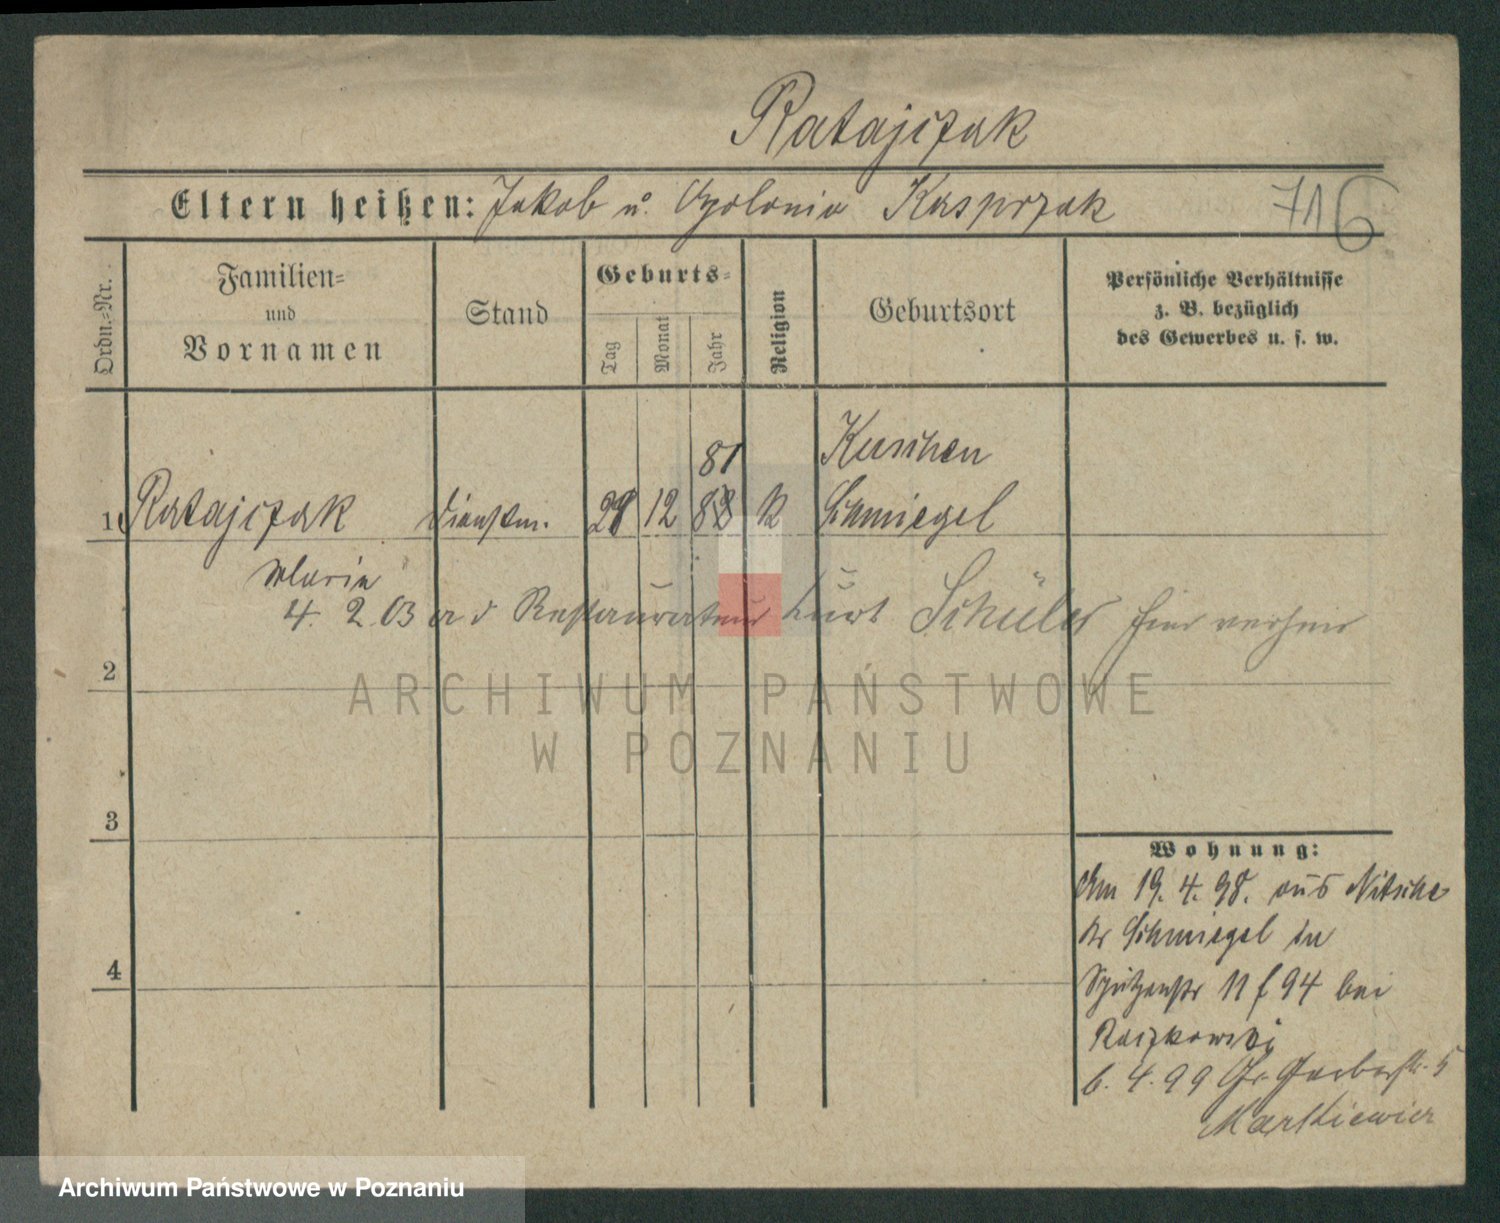 Ratajczak
Eltern heißen: Jakob u. Apolonia Kasprzak
716
Ordn.-Nr.
Familien-
und
Vornamen
Stand
Geburts-
Tag
Monat
Jahr
Religion
Geburtsort
Persönliche Verhältnisse
z. B. bezüglich
des Gewerbes u. s. w.
81
Kuschen
1 Ratajczak Dienstm. 12 k Schmiegel
Maria
4. 2 03 a d Restaurateur Kurt Schüler
2
ARCHIWUM PAŃSTWOWE
W POZNANIU
3
Wohnung:
Am 19. 4. 98. aus Nitsche
Kr Schmiegel in
Schützenstr 11 f 94 bei
Raczkowski
6. 4. 99 Gr. Gerberstr. 5
Martkiewicz
4
Archiwum Państwowe w Poznaniu